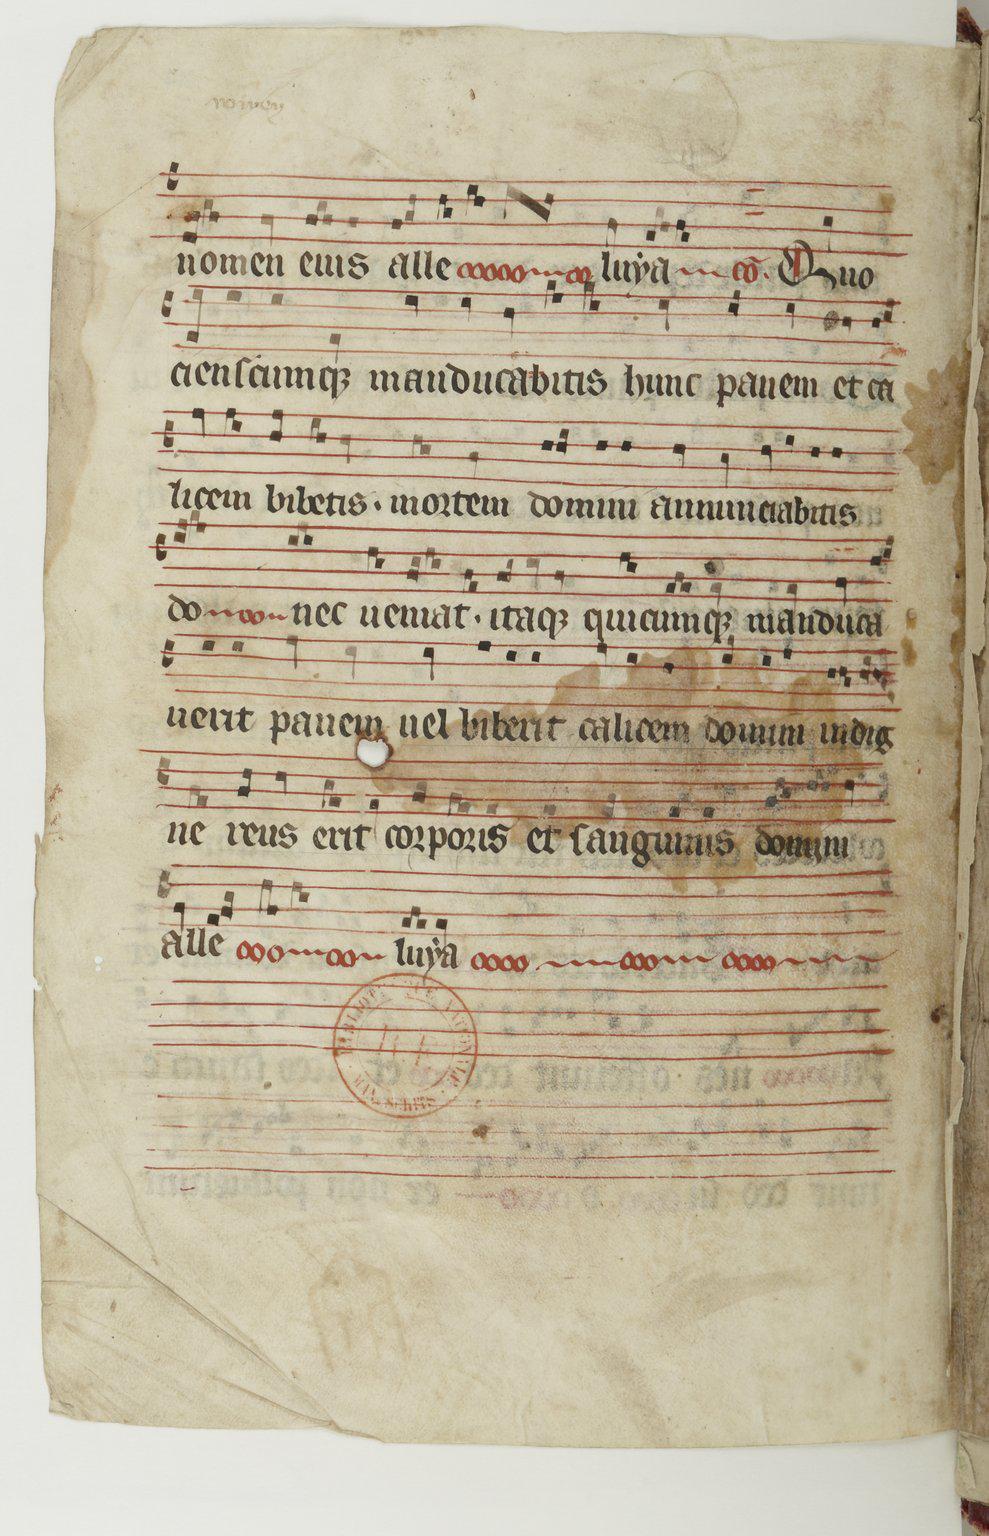 nomen eius alle luẏa cō. Quo
cienscumqꝫ manducabitis hunc panem et ca
licem bibetis · mortem domini annunciabitis
do nec ueniat · itaqꝫ quicumqꝫ manduca
uerit panem uel biberit calicem domini indig
ne reus erit corporis et sanguinis domini
alle luẏa